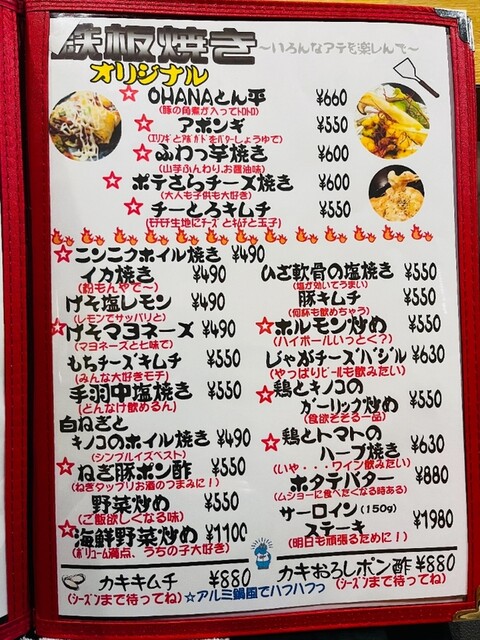 鉄板焼き ～いろんなアテを楽しんで～
オリジナル
☆OHANAとん平 ¥660
(豚の角煮が入ってトロトロ)
☆アボンギ ¥550
(エリンギとアボカドをバターしょうゆで)
☆ふわっ芋焼き ¥600
(山芋ふんわり、お醤油味)
☆ポテさらチーズ焼き ¥600
(大人も子供も大好き)
☆チーとろキムチ ¥550
(モチモチ生地にチーズとキムチと玉子)
☆ニンニクホイル焼き ¥490
イカ焼き ¥490
(粉もんやで〜)
げそ塩レモン ¥490
(レモンでサッパリと)
☆げそマヨネーズ ¥490
(マヨネーズと七味で)
もちチーズキムチ ¥550
(みんな大好きモチ)
手羽中塩焼き ¥550
(どんなけ飲めるん)
白ねぎと
キノコのホイル焼き ¥490
(シンプルイズベスト)
☆ねぎ豚ポン酢 ¥550
(ねぎタップリお酒のつまみに！)
野菜炒め ¥550
(ご飯欲しくなる味)
☆海鮮野菜炒め ¥1100
(ボリューム満点、うちの子大好き)
ひざ軟骨の塩焼き ¥550
(塩が効いてうまい)
豚キムチ ¥550
(何杯も飲めちゃう)
☆ホルモン炒め ¥550
(ハイボールいっとく？)
じゃがチーズバジル ¥630
(やっぱりビールも飲みたい)
☆鶏とキノコの
ガーリック炒め ¥550
(食欲そそる一品)
☆鶏とトマトの
ハーブ焼き ¥630
(いや・・・ワイン飲みたい)
ホタテバター ¥880
(ムショーに食べたくなる時ある)
サーロイン(150g)
ステーキ ¥1980
(明日も頑張るために！)
カキキムチ ¥880
(シーズンまで待ってね)
カキおろしポン酢 ¥880
(シーズンまで待ってね)
☆アルミ鍋風でハフハフっ